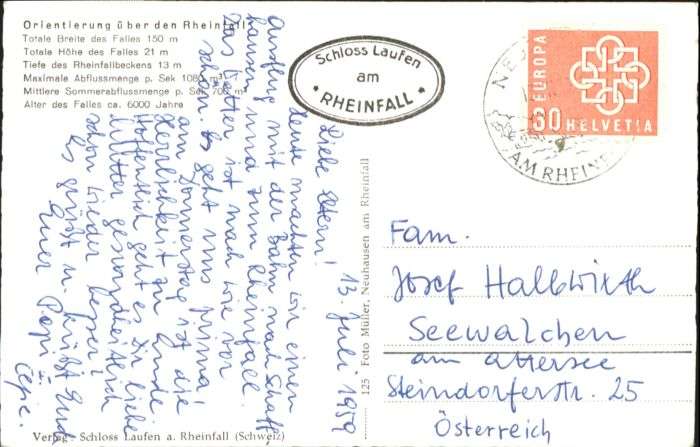 Orientierung über den Rheinfall
Totale Breite des Falles 150 m
Totale Höhe des Falles 21 m
Tiefe des Rheinfallbeckens 13 m
Maximale Abflussmenge p. Sek 1080 m³
Mittlere Sommerabflussmenge p. Sek 700 m³
Alter des Falles ca. 6000 Jahre
Schloss Laufen
am
* RHEINFALL *
EUROPA
30 HELVETIA
AM RHEINF
13. Juli 1959
Liebe Eltern!
Heute machten wir einen
Ausflug mit der Bahn nach Schaff
hausen und zum Rheinfall.
Das Wetter ist nach wie vor
schön. Es geht uns prima!
am Donnerstag ist die
Herrlichkeit zu Ende
Hoffentlich geht es Dir liebe
Mutter gesundheitlich
schon wieder besser!
Es grüßt u. küßt Euch
Euer Pepi u.
125 Foto Müller, Neuhausen am Rheinfall
Fam.
Josef Hallwirth
Seewalchen
am Attersee
Steindorferstr. 25
Österreich
Verlag Schloss Laufen a. Rheinfall (Schweiz)